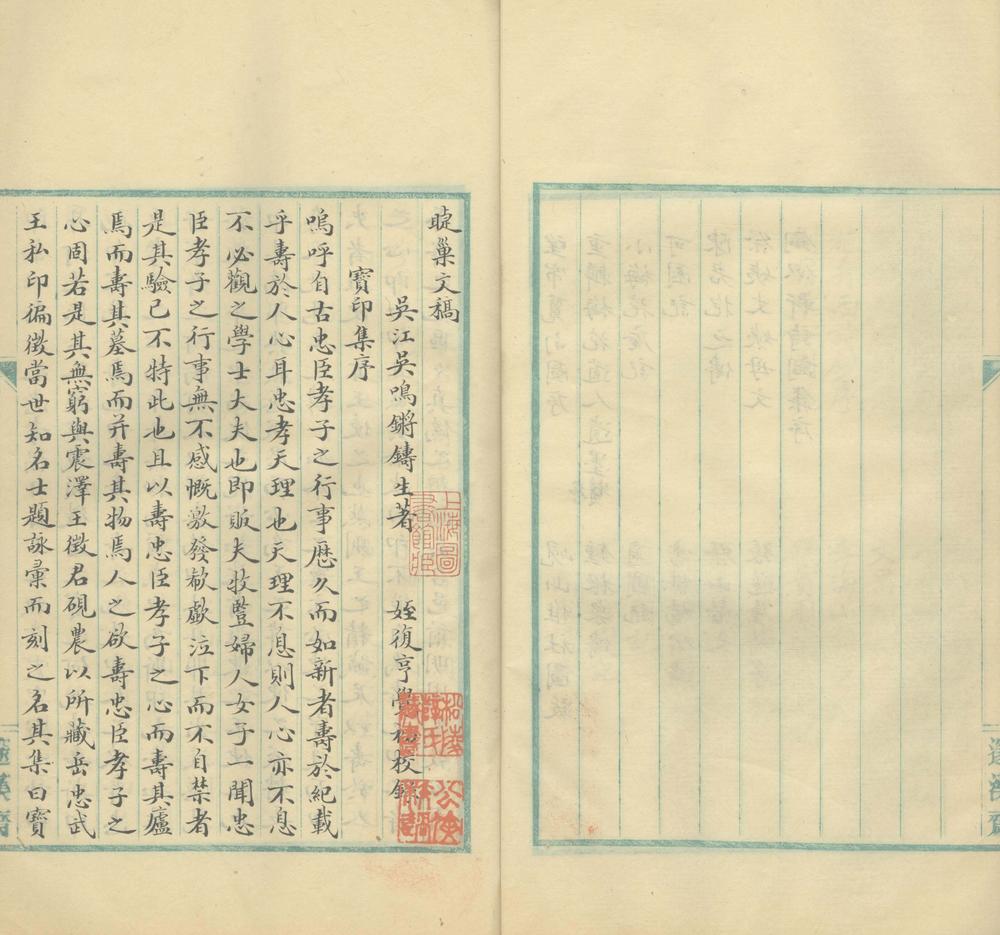 睫巢文稿
吳江吳鳴鏘鑄生著　姪復亨校錄
寶印集序
嗚呼自古忠臣孝子之行事歷久而如新者壽於紀載
乎壽於人心耳忠孝天理也天理不息則人心亦不息
不必觀之學士大夫也即販夫牧豎婦人女子一聞忠
臣孝子之行事無不感慨激發欷歔泣下而不自禁者
是其驗已不特此也且以壽忠臣孝子之心而壽其廬
焉而壽其墓焉而并壽其物焉人之欲壽忠臣孝子之
心固若是其無窮與震澤王徵君硯農以所藏岳忠武
王私印徧徵當世知名士題詠彙而刻之名其集曰寶
上海圖
書館藏